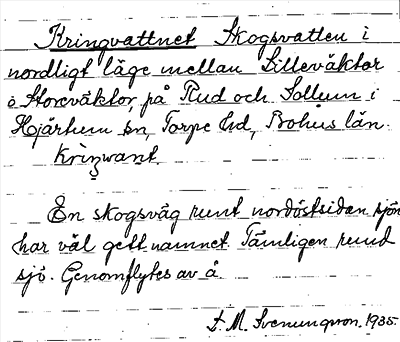 Kringvattnet Skogsvatten i
nordligt läge mellan Lilleväktor
o Storeväktor på Rud och Sollum i
Hjärtum sn, Torpe hd, Bohus län.
Kriŋwant.
En skogsväg runt nordöstsidan sjön
har väl gett namnet. Tämligen rund
sjö. Genomflytes av å
D. M. Svenungsson. 1935.